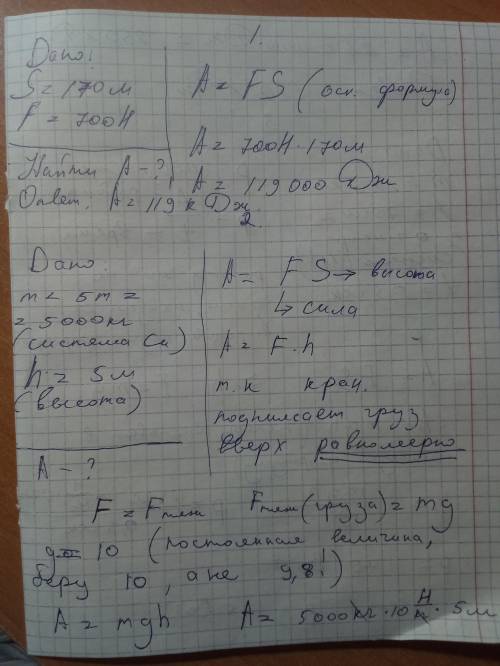 1.
Дано:
S = 170 м
F = 700 Н
A = FS (осн. формула)
A = 700Н · 170м
A = 119 000 Дж
Найти A - ?
Ответ: A = 119 к Дж
2.
Дано:
m = 5 т =
= 5000 кг
(система Си)
h = 5 м
(высота)
A - ?
A = F S → высота
↳ сила
A = F · h
т.к кран
поднимает груз
вверх равномерно
F = Fтяж Fтяж (груза) = mg
g = 10 (постоянная величина,
беру 10, а не 9,8!)
A = mgh A = 5000кг · 10 Н/кг · 5м